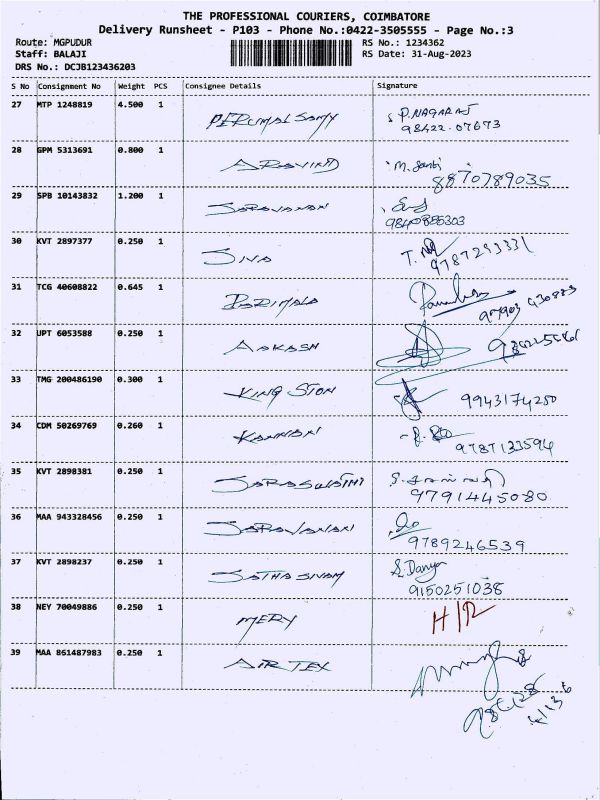 THE PROFESSIONAL COURIERS, COIMBATORE
Delivery Runsheet - P103 - Phone No.:0422-3505555 - Page No.:3
Route: MGPUDUR RS No.: 1234362
Staff: BALAJI RS Date: 31-Aug-2023
DRS No.: DCJB123436203
S No Consignment No Weight PCS Consignee Details Signature
27 MTP 1248819 4.500 1 PERUMAL SAMY P. NAGARAJ
98422 07673
28 GPM 5313691 0.800 1 ARAVIND M.
8870789035
29 SPB 10143832 1.200 1 SARAVANAN
30 KVT 2897377 0.250 1 SIVA T.
9787293331
31 TCG 40608822 0.645 1 PARIMALA
32 UPT 6053588 0.250 1 AAKASH
33 TMG 200486190 0.300 1 KING STON 9943174250
34 CDM 50269769 0.260 1 KANNAN
9787133594
35 KVT 2898381 0.250 1 SARASWATHI
9791445080
36 MAA 943328456 0.250 1 SARAVANAN
9789246539
37 KVT 2898237 0.250 1 SATHASIVAM S. Danya
9150251038
38 NEY 70049886 0.250 1 MERY H/R
39 MAA 861487983 0.250 1 AIRTEX